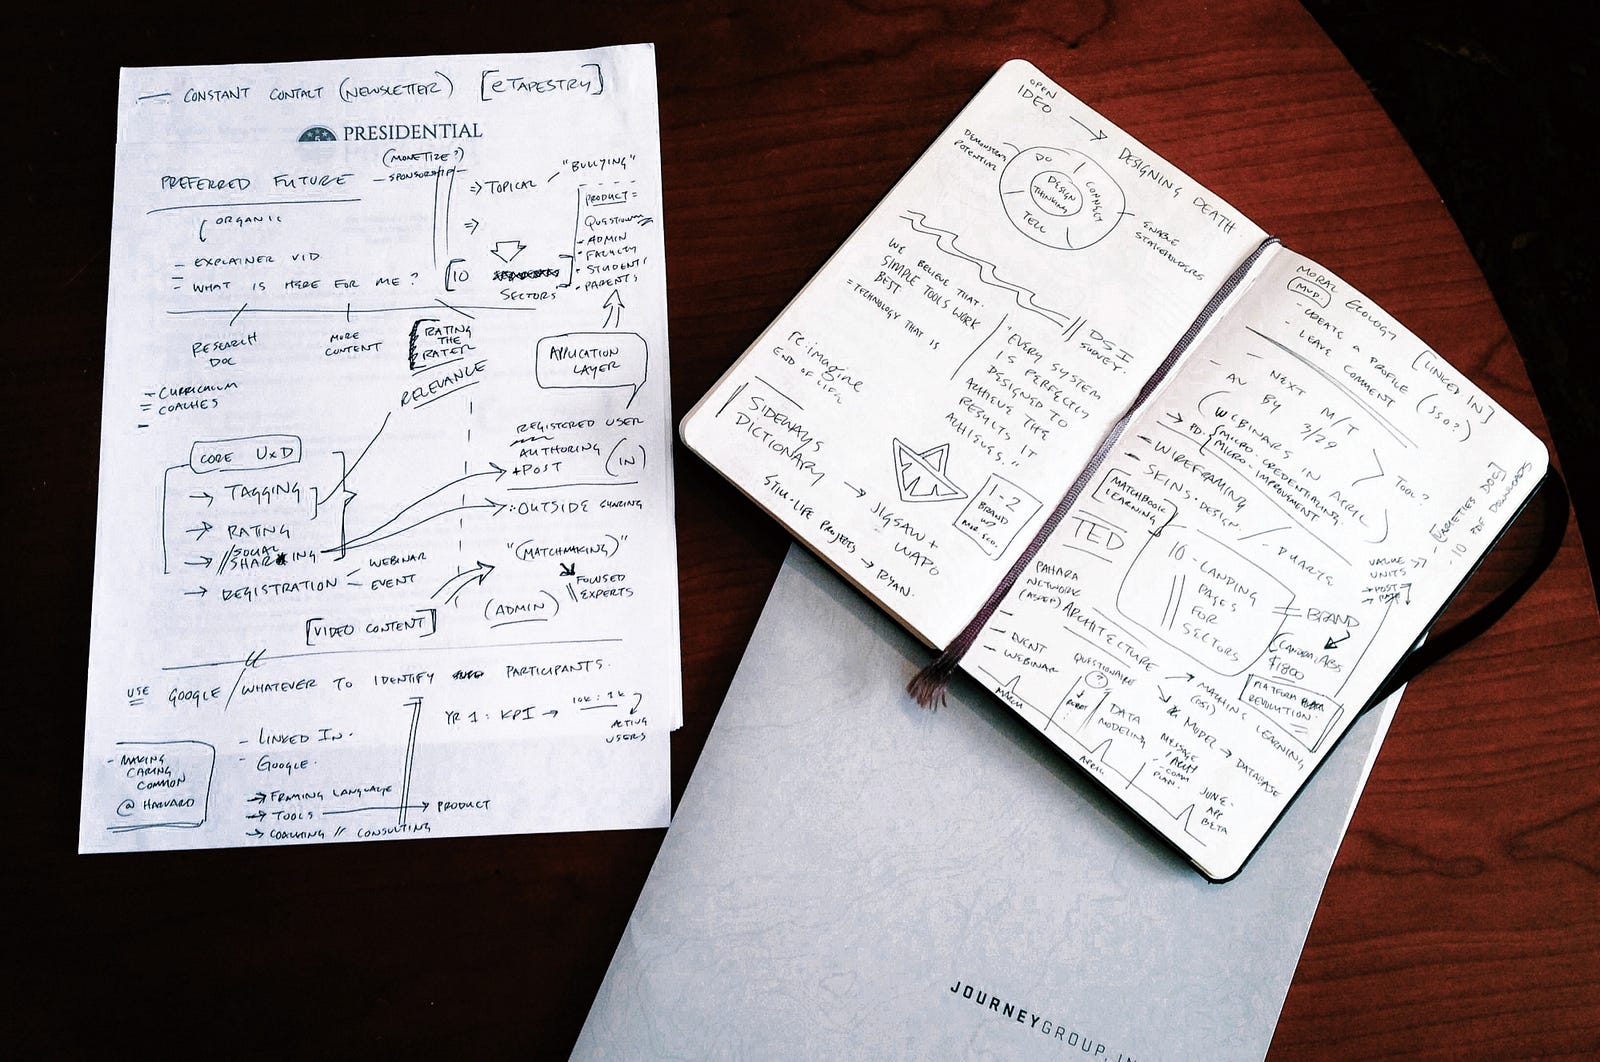 — CONSTANT CONTACT (NEWSLETTER) [eTAPESTRY]
PRESIDENTIAL
(MONETIZE?)
— SPONSORSHIP —
PREFERRED FUTURE
ORGANIC
- EXPLAINER VID
- WHAT IS HERE FOR ME?
⇒ TOPICAL
"BULLYING"
⇒
[10
SECTORS
PRODUCT =
QUESTIONS
- ADMIN
- FACULTY
- STUDENTS
- PARENTS
RESEARCH
DOC
MORE
CONTENT
RATING
THE
RATER
RELEVANCE
APPLICATION
LAYER
- CURRICULUM
= COACHES
-
CORE UxD
→ TAGGING
→ RATING
→ //SOCIAL
SHARING
→ REGISTRATION
WEBINAR
EVENT
REGISTERED USER
AUTHORING
+POST (IN)
OUTSIDE SHARING
"(MATCHMAKING)"
FOCUSED
EXPERTS
(ADMIN)
[VIDEO CONTENT]
USE GOOGLE/WHATEVER TO IDENTIFY PARTICIPANTS.
YR 1: KPI → 10K : 1K
ACTIVE
USERS
- LINKED IN.
- GOOGLE.
→ FRAMING LANGUAGE
→ TOOLS → PRODUCT
→ COACHING // CONSULTING
- MAKING
CARING
COMMON
@ HARVARD
OPEN
IDEO → DESIGNING DEATH
DEMONSTRATE
POTENTIAL
DO
CONNECT
TELL
DESIGN
THINKING
ENABLE
STAKEHOLDERS
WE BELIEVE THAT
SIMPLE TOOLS WORK
BEST
= TECHNOLOGY THAT IS
D.S.I
SURVEY.
re:imagine
END OF LIFE
"EVERY SYSTEM
IS PERFECTLY
DESIGNED TO
ACHIEVE THE
RESULTS IT
ACHIEVES."
SIDEWAYS
DICTIONARY → JIGSAW +
WAPO
STILL-LIFE PROJECTS → RYAN.
1-2
BRAND
w/
MOR. ECO.
MORAL ECOLOGY [LINKED IN]
MVP.
- CREATE A PROFILE (SSO?)
- LEAVE COMMENT
- NEXT M/T
- AV BY 3/29
(WEBINARS IN APRIL)
→ PD. MICRO-CREDENTIALING
MICRO-IMPROVEMENT
TOOL?
- WIREFRAMING
- SKINS. DESIGN. / - DUARTE
MATCHBOOK
LEARNING
TED
[VARIETIES DOC]
- 10 PDF DOWNLOADS
VALUE
UNITS
→ POST
10 - LANDING
PAGES
FOR
SECTORS
= BRAND
CANDDILABS
$1800
PLATFORM
REVOLUTION.
PAHARA
NETWORK
(ASPEN)
ARCHITECTURE
- EVENT
- WEBINAR
QUESTIONNAIRE
?
ROBOT
DATA
MODELING
→ MACHINE LEARNING
(DSI)
MODEL → DATABASE
MESSAGE
/ARCH
-COMM
PLAN.
MARCH
APRIL
JUNE-
APP
BETA
JOURNEYGROUP, IN